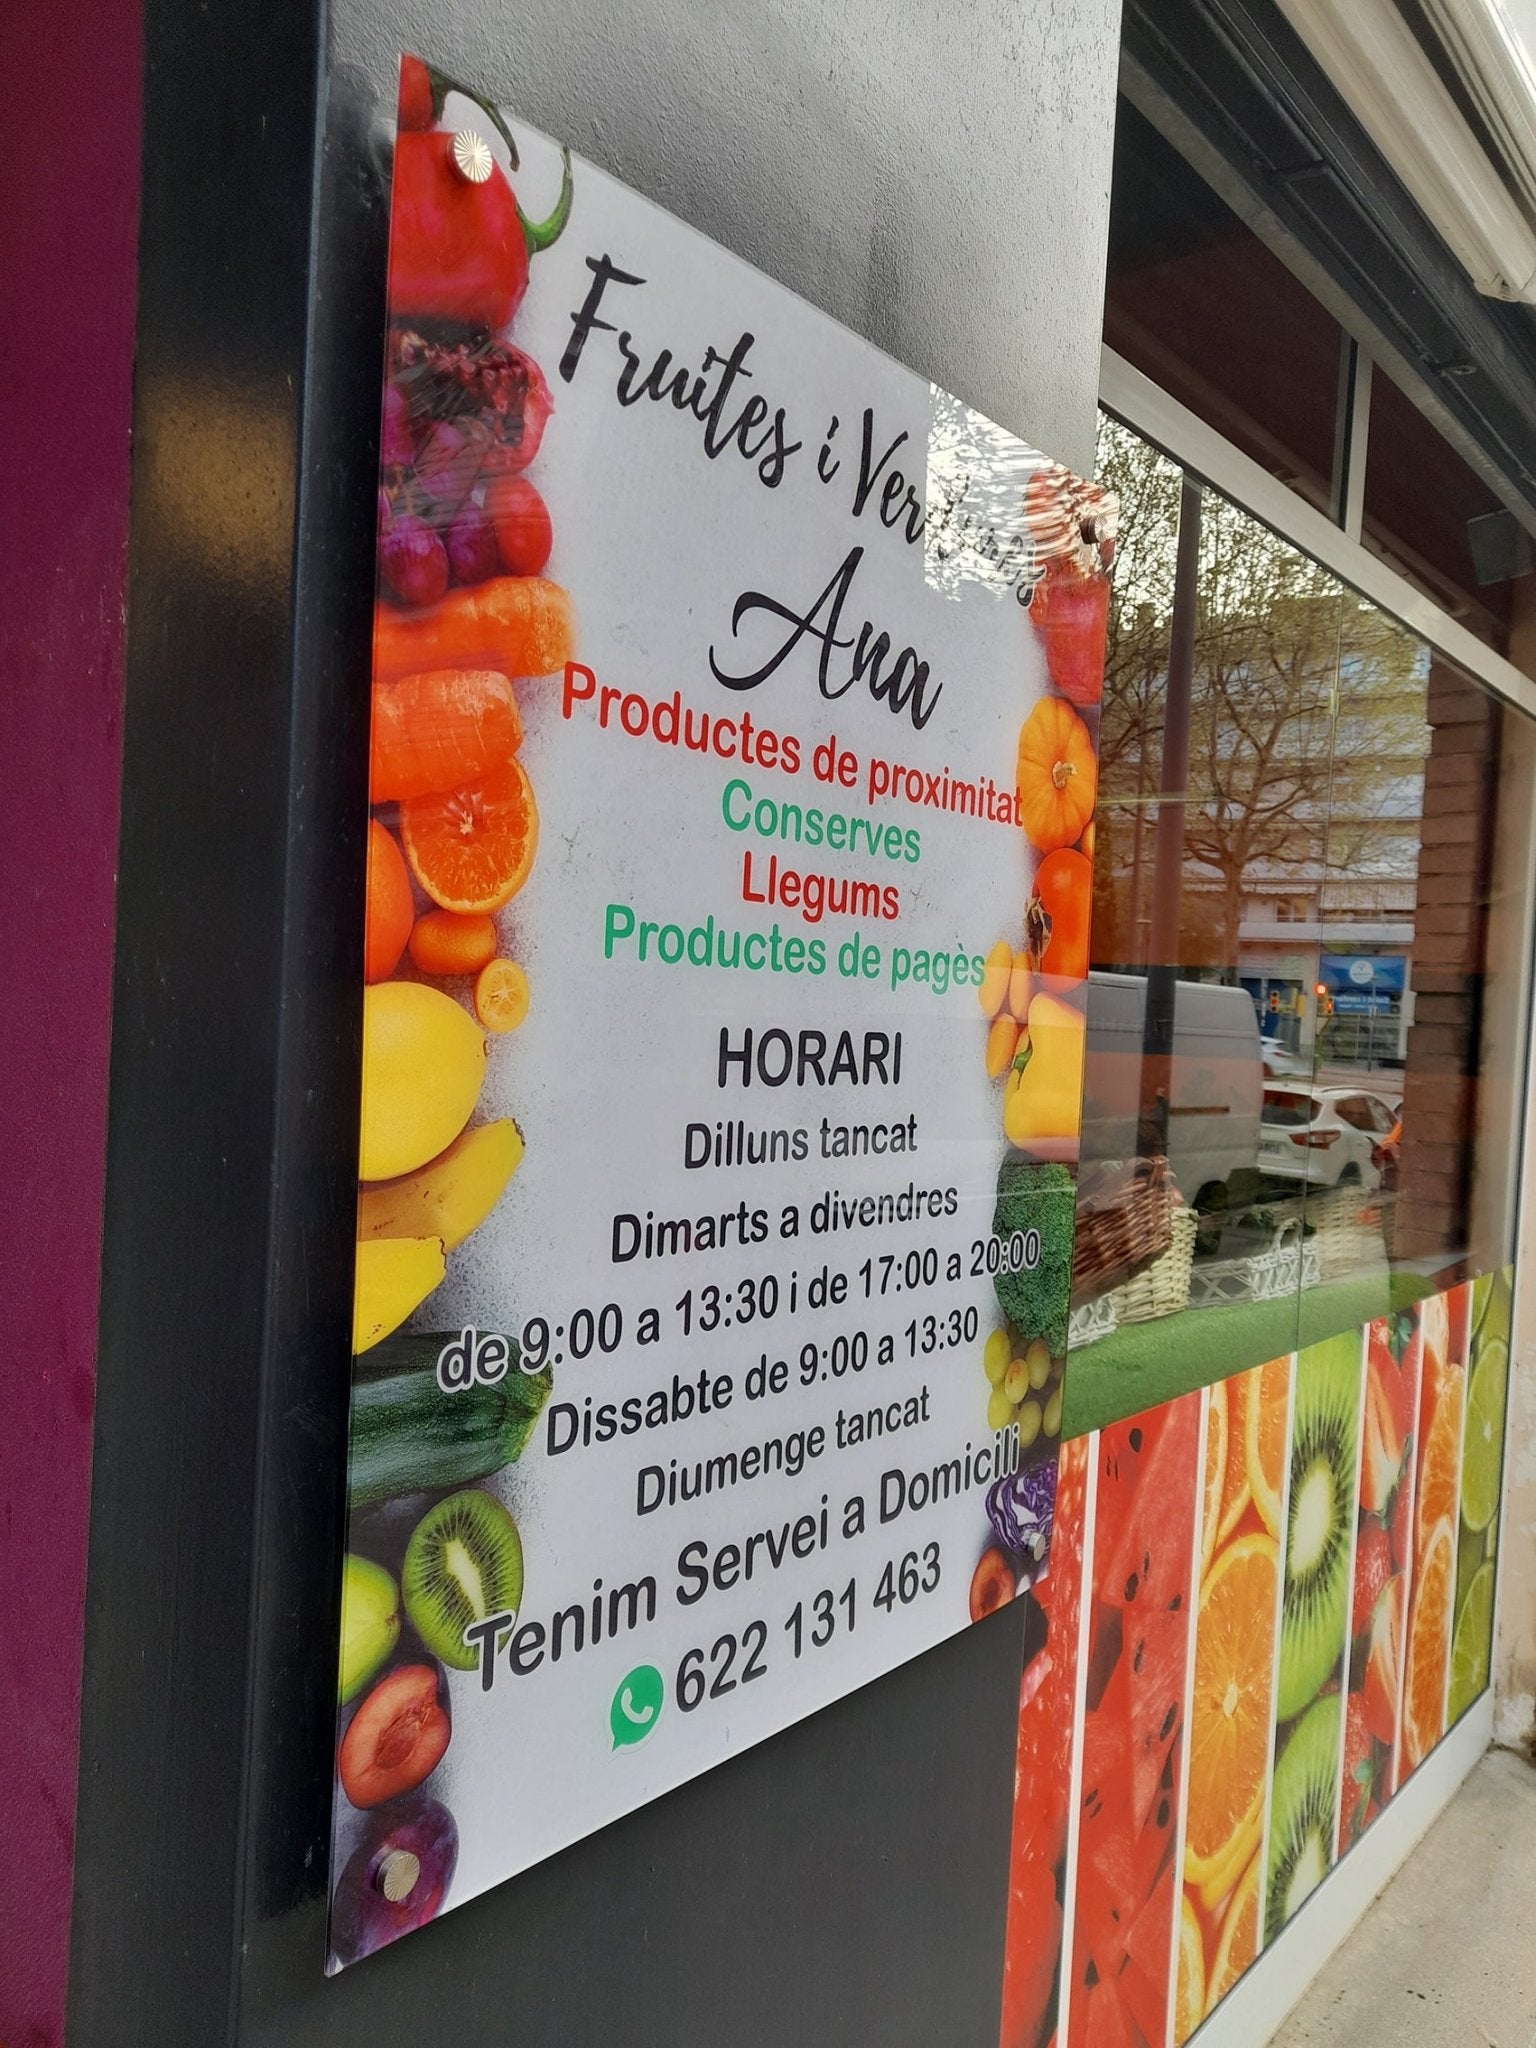 Fruites i Verdures
Ana
Productes de proximitat
Conserves
Llegums
Productes de pagès
HORARI
Dilluns tancat
Dimarts a divendres
de 9:00 a 13:30 i de 17:00 a 20:00
Dissabte de 9:00 a 13:30
Diumenge tancat
Tenim Servei a Domicili
622 131 463